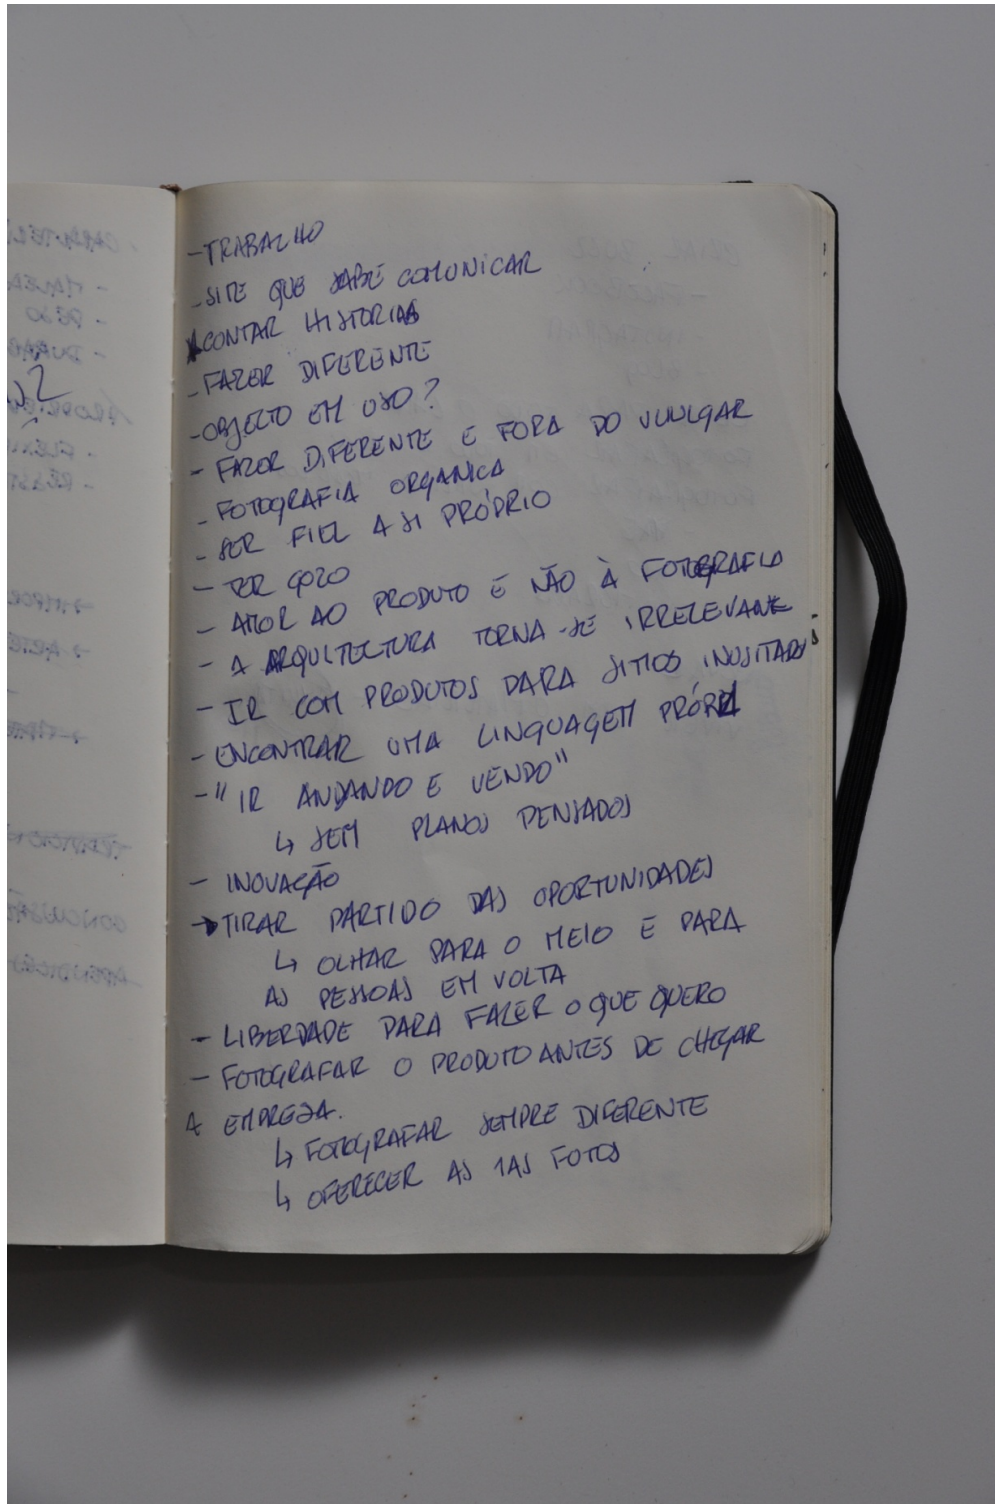 - TRABALHO
- SITE QUE SABE COMUNICAR
CONTAR HISTORIAS
- FAZER DIFERENTE
- OBJECTO EM USO?
- FAZER DIFERENTE E FORA DO VULGAR
- FOTOGRAFIA ORGANICA
- SER FIEL A SI PRÓPRIO
- TER GOZO
- AMOR AO PRODUTO E NÃO À FOTOGRAFIA
- A ARQUITECTURA TORNA-SE IRRELEVANTE
- IR COM PRODUTOS PARA SITIOS INUSITADOS
- ENCONTRAR UMA LINGUAGEM PRÓPRIA
- "IR ANDANDO E VENDO"
↳ SEM PLANOS PENSADOS
- INOVAÇÃO
→ TIRAR PARTIDO DAS OPORTUNIDADES
↳ OLHAR PARA O MEIO E PARA
AS PESSOAS EM VOLTA
- LIBERDADE PARA FAZER O QUE QUERO
- FOTOGRAFAR O PRODUTO ANTES DE CHEGAR
A EMPRESA.
↳ FOTOGRAFAR SEMPRE DIFERENTE
↳ OFERECER AS 1AS FOTOS